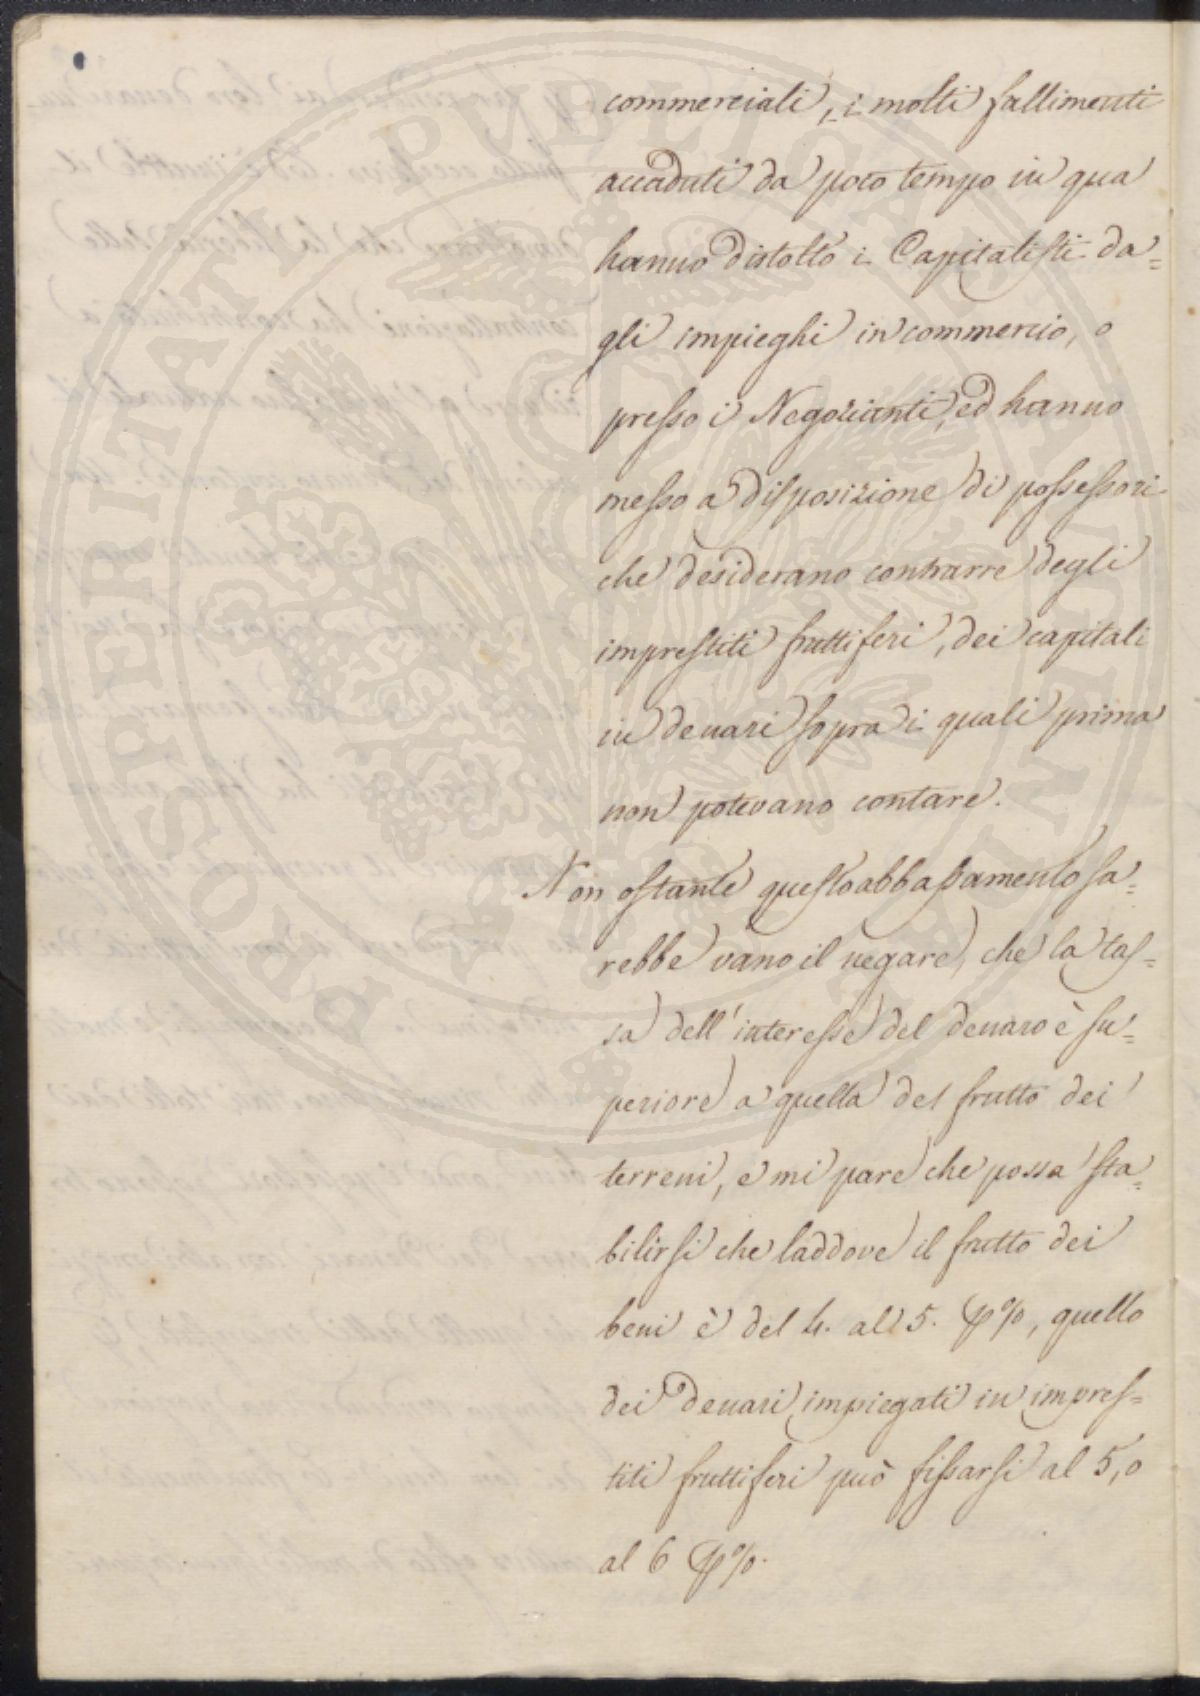 commerciali, i molti fallimenti
accaduti da poco tempo in qua
hanno distolto i Capitalisti da=
gli impieghi in commercio, o
presso i Negozianti, ed hanno
messo a disposizione di possessori
che desiderano contrarre degli
imprestiti fruttiferi, dei capitali
in denari sopra i quali prima
non potevano contare.
Non ostante questo abbassamento sa=
rebbe vano il negare, che la tas=
sa dell'interesse del denaro è su=
periore a quella del frutto dei
terreni, e mi pare che possa sta=
bilirsi che laddove il frutto dei
beni è del 4. al 5. p%, quello
dei denari impiegati in impres=
titi fruttiferi può fissarsi al 5, o
al 6 p%.
PROSPERITATI PUBLICAE AUGENDAE